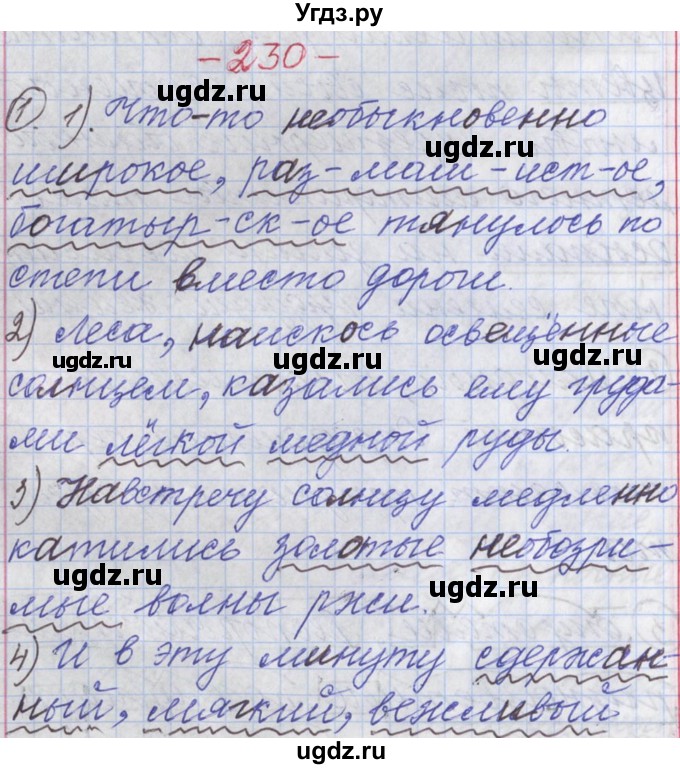 Угдз.ру
- 230 -
ugdz.ru
1. 1). Что-то необыкновенно
ugdz.ru
широкое, раз-маш-ист-ое,
богатыр-ск-ое тянулось по
ugdz.ru
степи вместо дороги.
2) Леса, наискось освещённые
ugdz.ru ugdz.ru ugdz.ru
солнцем, казались ему груда-
ми лёгкой медной руды.
3) Навстречу солнцу медленно
катились золотые необозри-
ugdz.ru ugdz.ru
мые волны ржи.
4) И в эту минуту сдержан-
ный, мягкий, вежливый
ugdz.ru